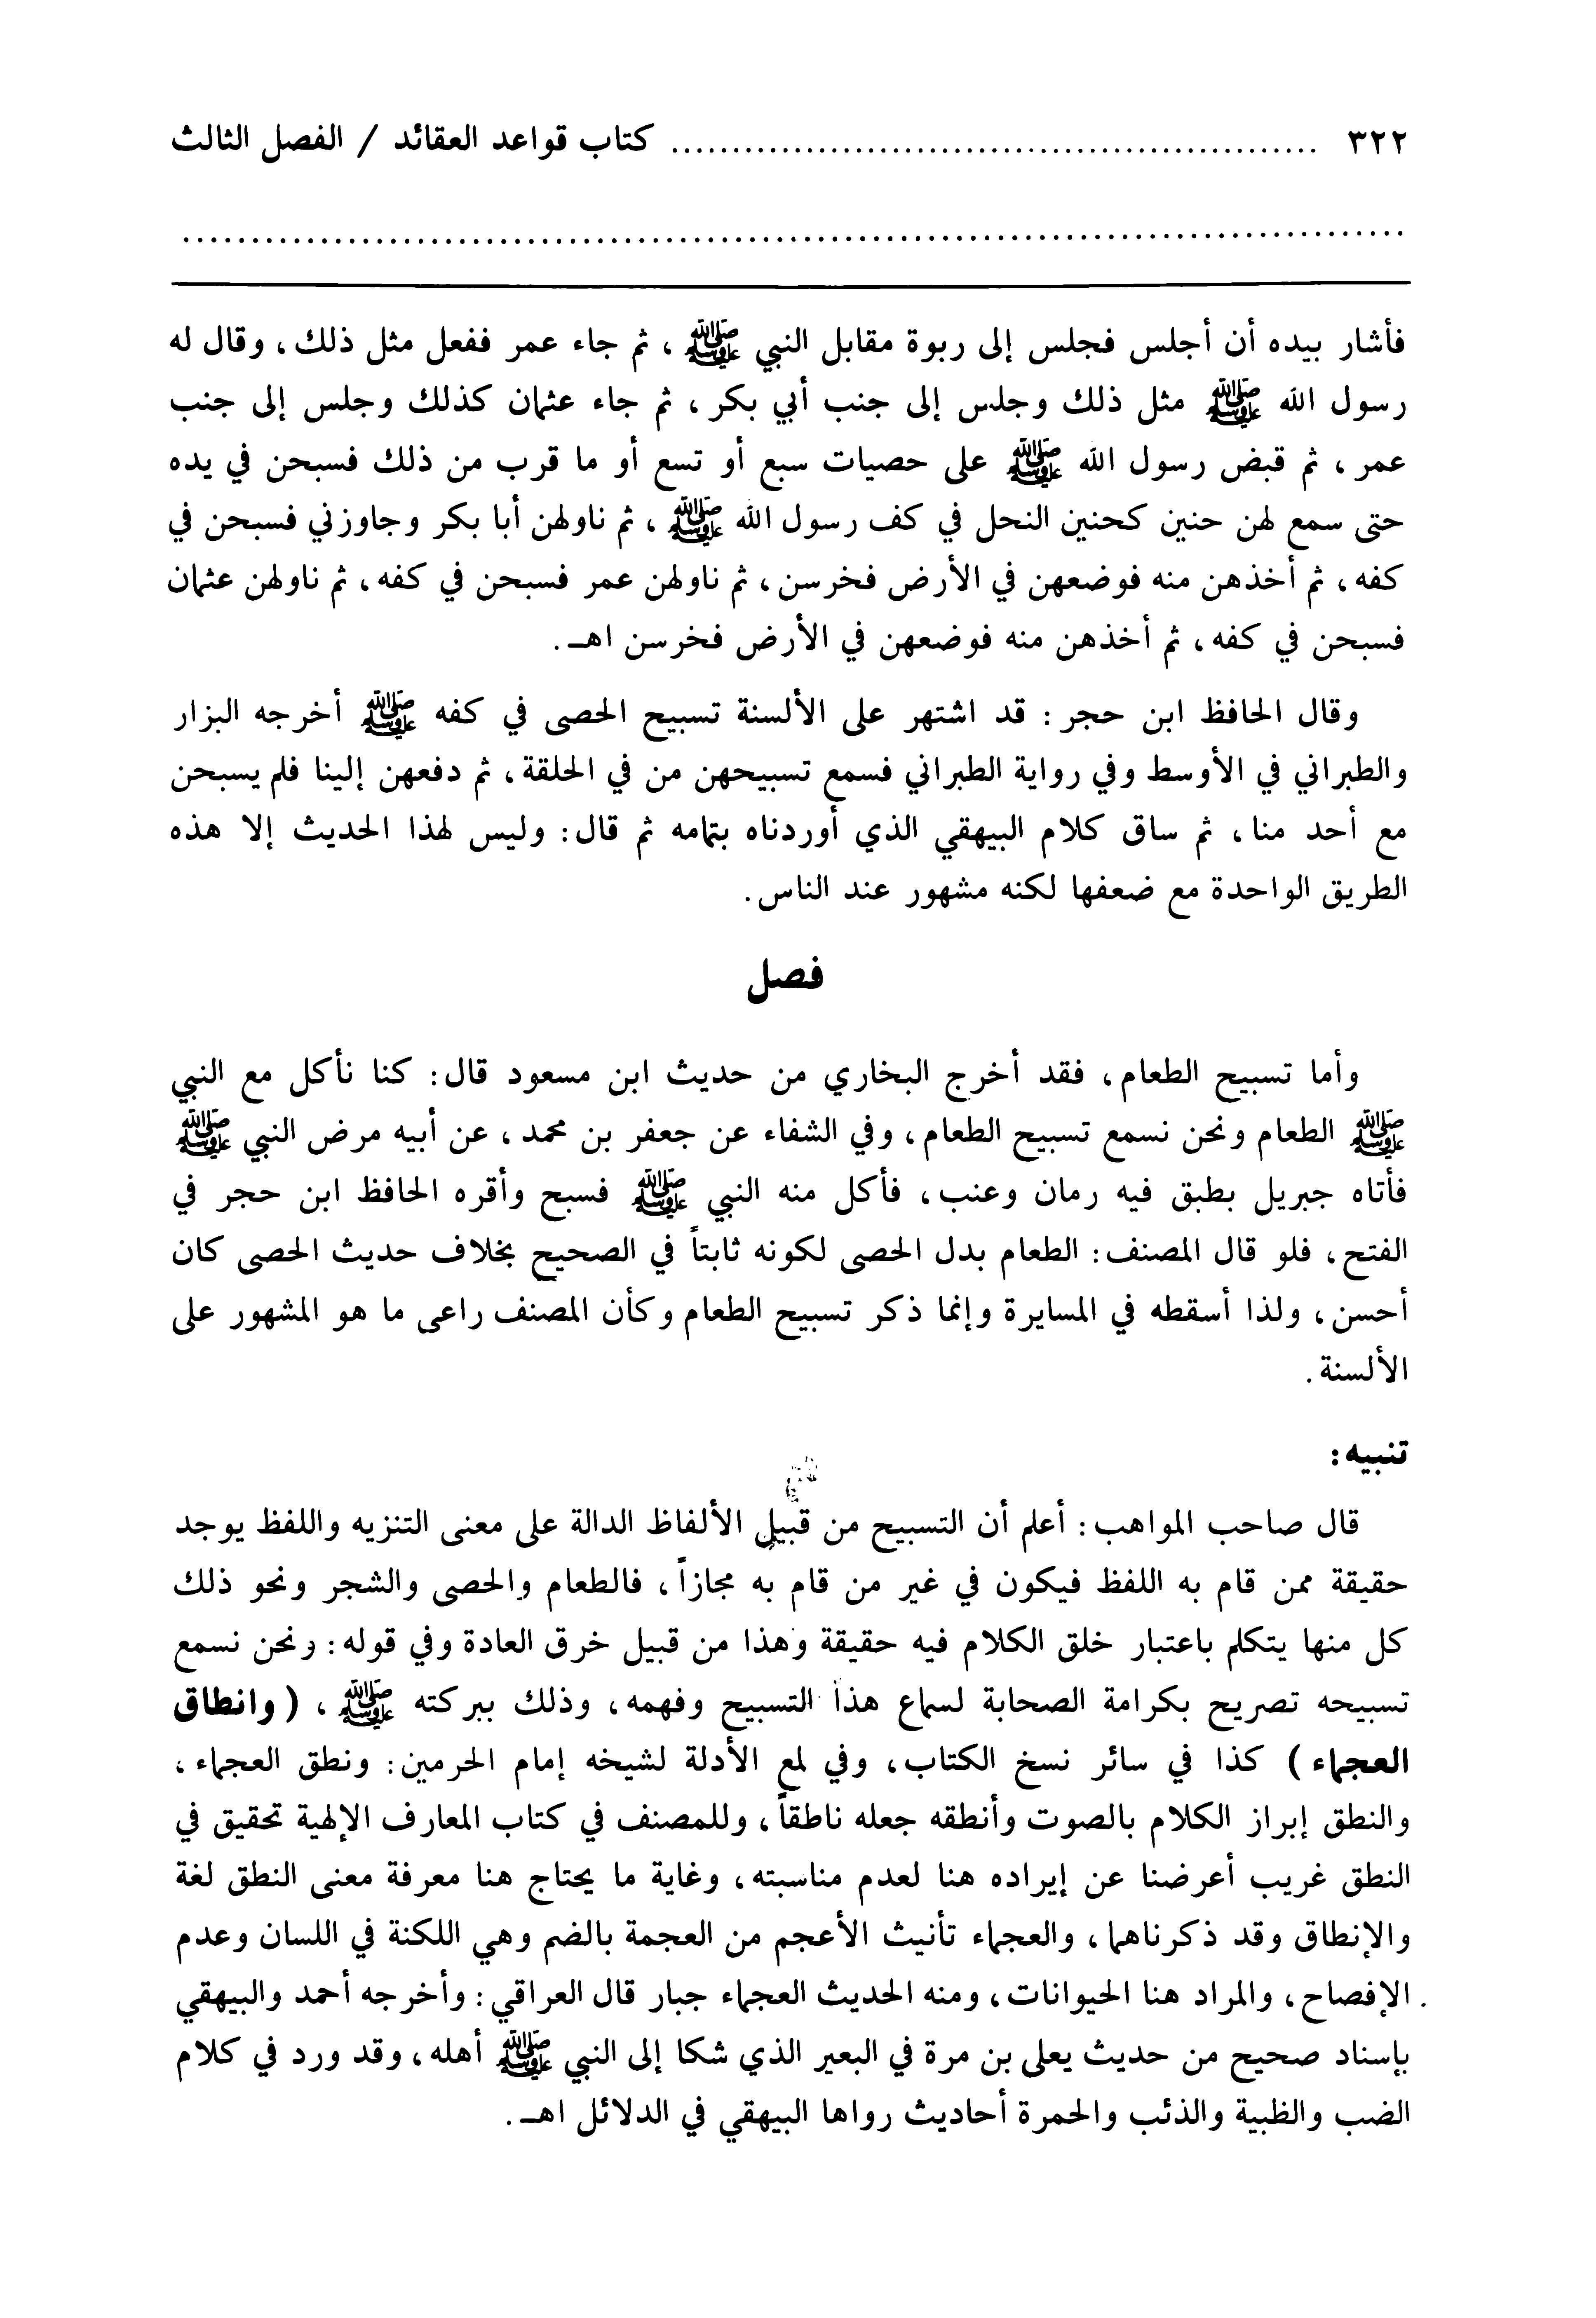 ٣٢٢ ..................................................... كتاب قواعد العقائد / الفصل الثالث
.....................................................................................................
فأشار بيده أن أجلس فجلس إلى ربوة مقابل النبي ﷺ ، ثم جاء عمر ففعل مثل ذلك، وقال له
رسول الله ﷺ مثل ذلك وجلس إلى جنب أبي بكر ، ثم جاء عثمان كذلك وجلس إلى جنب
عمر ، ثم قبض رسول الله ﷺ على حصيات سبع أو تسع أو ما قرب من ذلك فسبحن في يده
حتى سمع لهن حنين كحنين النحل في كف رسول الله ﷺ ، ثم ناولهن أبا بكر وجاوزني فسبحن في
كفه ، ثم أخذهن منه فوضعهن في الأرض فخرسن ، ثم ناولهن عمر فسبحن في كفه ، ثم ناولهن عثمان
فسبحن في كفه ، ثم أخذهن منه فوضعهن في الأرض فخرسن اهـ .
وقال الحافظ ابن حجر : قد اشتهر على الألسنة تسبيح الحصى في كفه ﷺ أخرجه البزار
والطبراني في الأوسط وفي رواية الطبراني فسمع تسبيحهن من في الحلقة ، ثم دفعهن إلينا فلم يسبحن
مع أحد منا ، ثم ساق كلام البيهقي الذي أوردناه بتمامه ثم قال : وليس لهذا الحديث إلا هذه
الطريق الواحدة مع ضعفها لكنه مشهور عند الناس .
فصل
وأما تسبيح الطعام ، فقد أخرج البخاري من حديث ابن مسعود قال : كنا نأكل مع النبي
ﷺ الطعام ونحن نسمع تسبيح الطعام ، وفي الشفاء عن جعفر بن محمد ، عن أبيه مرض النبي ﷺ
فأتاه جبريل بطبق فيه رمان وعنب ، فأكل منه النبي ﷺ فسبح وأقره الحافظ ابن حجر في
الفتح ، فلو قال المصنف : الطعام بدل الحصى لكونه ثابتاً في الصحيح بخلاف حديث الحصى كان
أحسن ، ولذا أسقطه في المسايرة وإنما ذكر تسبيح الطعام وكأن المصنف راعى ما هو المشهور على
الألسنة .
تنبيه :
قال صاحب المواهب : أعلم أن التسبيح من قبيل الألفاظ الدالة على معنى التنزيه واللفظ يوجد
حقيقة ممن قام به اللفظ فيكون في غير من قام به مجازاً ، فالطعام والحصى والشجر ونحو ذلك
كل منها يتكلم باعتبار خلق الكلام فيه حقيقة وهذا من قبيل خرق العادة وفي قوله : ونحن نسمع
تسبيحه تصريح بكرامة الصحابة لسماع هذا التسبيح وفهمه ، وذلك ببركته ﷺ ، ( وانطاق
العجماء ) كذا في سائر نسخ الكتاب ، وفي لمع الأدلة لشيخه إمام الحرمين : ونطق العجماء ،
والنطق إبراز الكلام بالصوت وأنطقه جعله ناطقاً ، وللمصنف في كتاب المعارف الإلهية تحقيق في
النطق غريب أعرضنا عن إيراده هنا لعدم مناسبته ، وغاية ما يحتاج هنا معرفة معنى النطق لغة
والإنطاق وقد ذكرناهما ، والعجماء تأنيث الأعجم من العجمة بالضم وهي اللكنة في اللسان وعدم
الإفصاح ، والمراد هنا الحيوانات ، ومنه الحديث العجماء جبار قال العراقي : وأخرجه أحمد والبيهقي
بإسناد صحيح من حديث يعلى بن مرة في البعير الذي شكا إلى النبي ﷺ أهله ، وقد ورد في كلام
الضب والظبية والذئب والحمرة أحاديث رواها البيهقي في الدلائل اهـ .